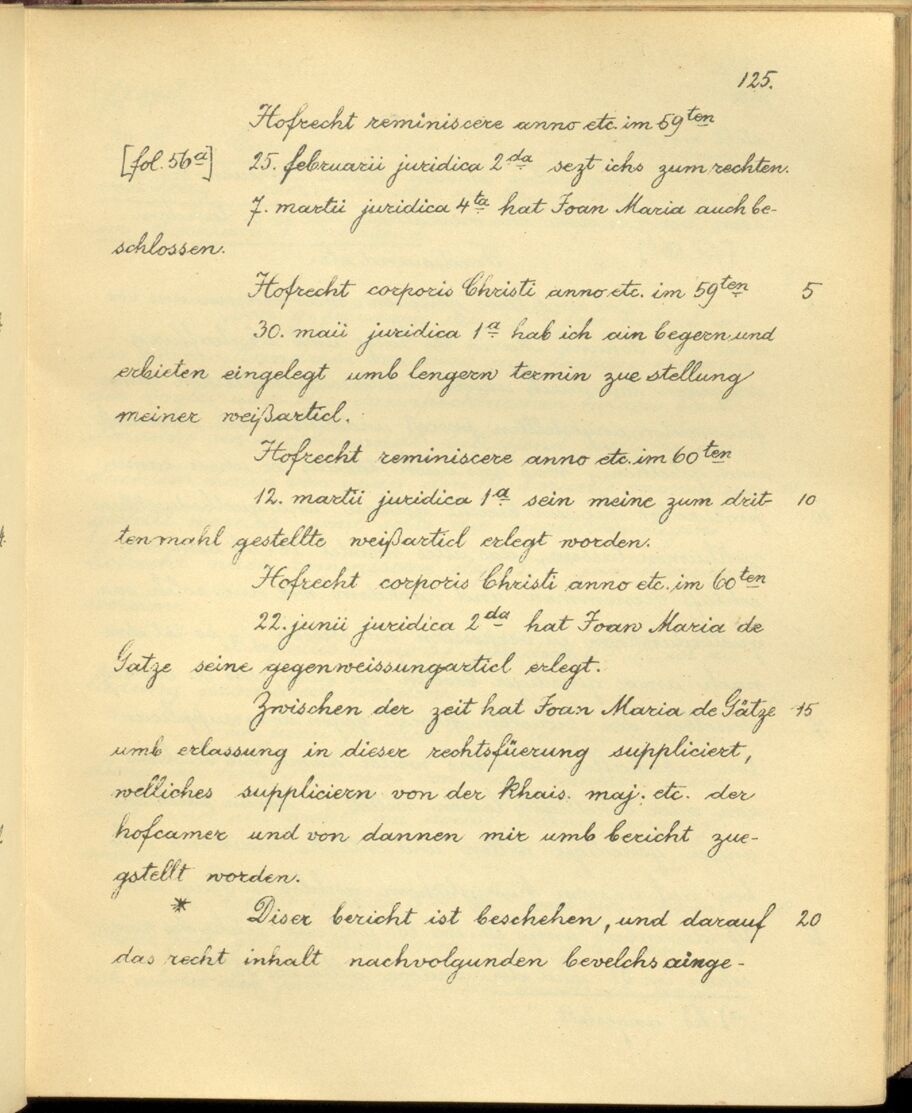 125.
Hofrecht reminiscere anno etc. im 59ten
[fol. 56a] 25. februarii juridica 2da sezt ichs zum rechten.
7. martii juridica 4ta hat Joan Maria auch be-
schlossen.
Hofrecht corporis Christi anno etc. im 59ten 5
30. maii juridica 1a hab ich ain begern und
erbieten eingelegt umb lengern termin zue stellung
meiner weißarticl.
Hofrecht reminiscere anno etc. im 60ten
12. martii juridica 1a sein meine zum drit- 10
tenmahl gestellte weißarticl erlegt worden.
Hofrecht corporis Christi anno etc. im 60ten
22. junii juridica 2da hat Joan Maria de
Gatze seine gegenweissungarticl erlegt.
Zwischen der zeit hat Joan Maria de Gätze 15
umb erlassung in dieser rechtsfüerung suppliciert,
welliches suppliciern von der khais. maj. etc. der
hofcamer und von dannen mir umb bericht zue-
gstellt worden.
* Diser bericht ist beschehen, und darauf 20
das recht inhalt nachvolgunden bevelchs ainge-